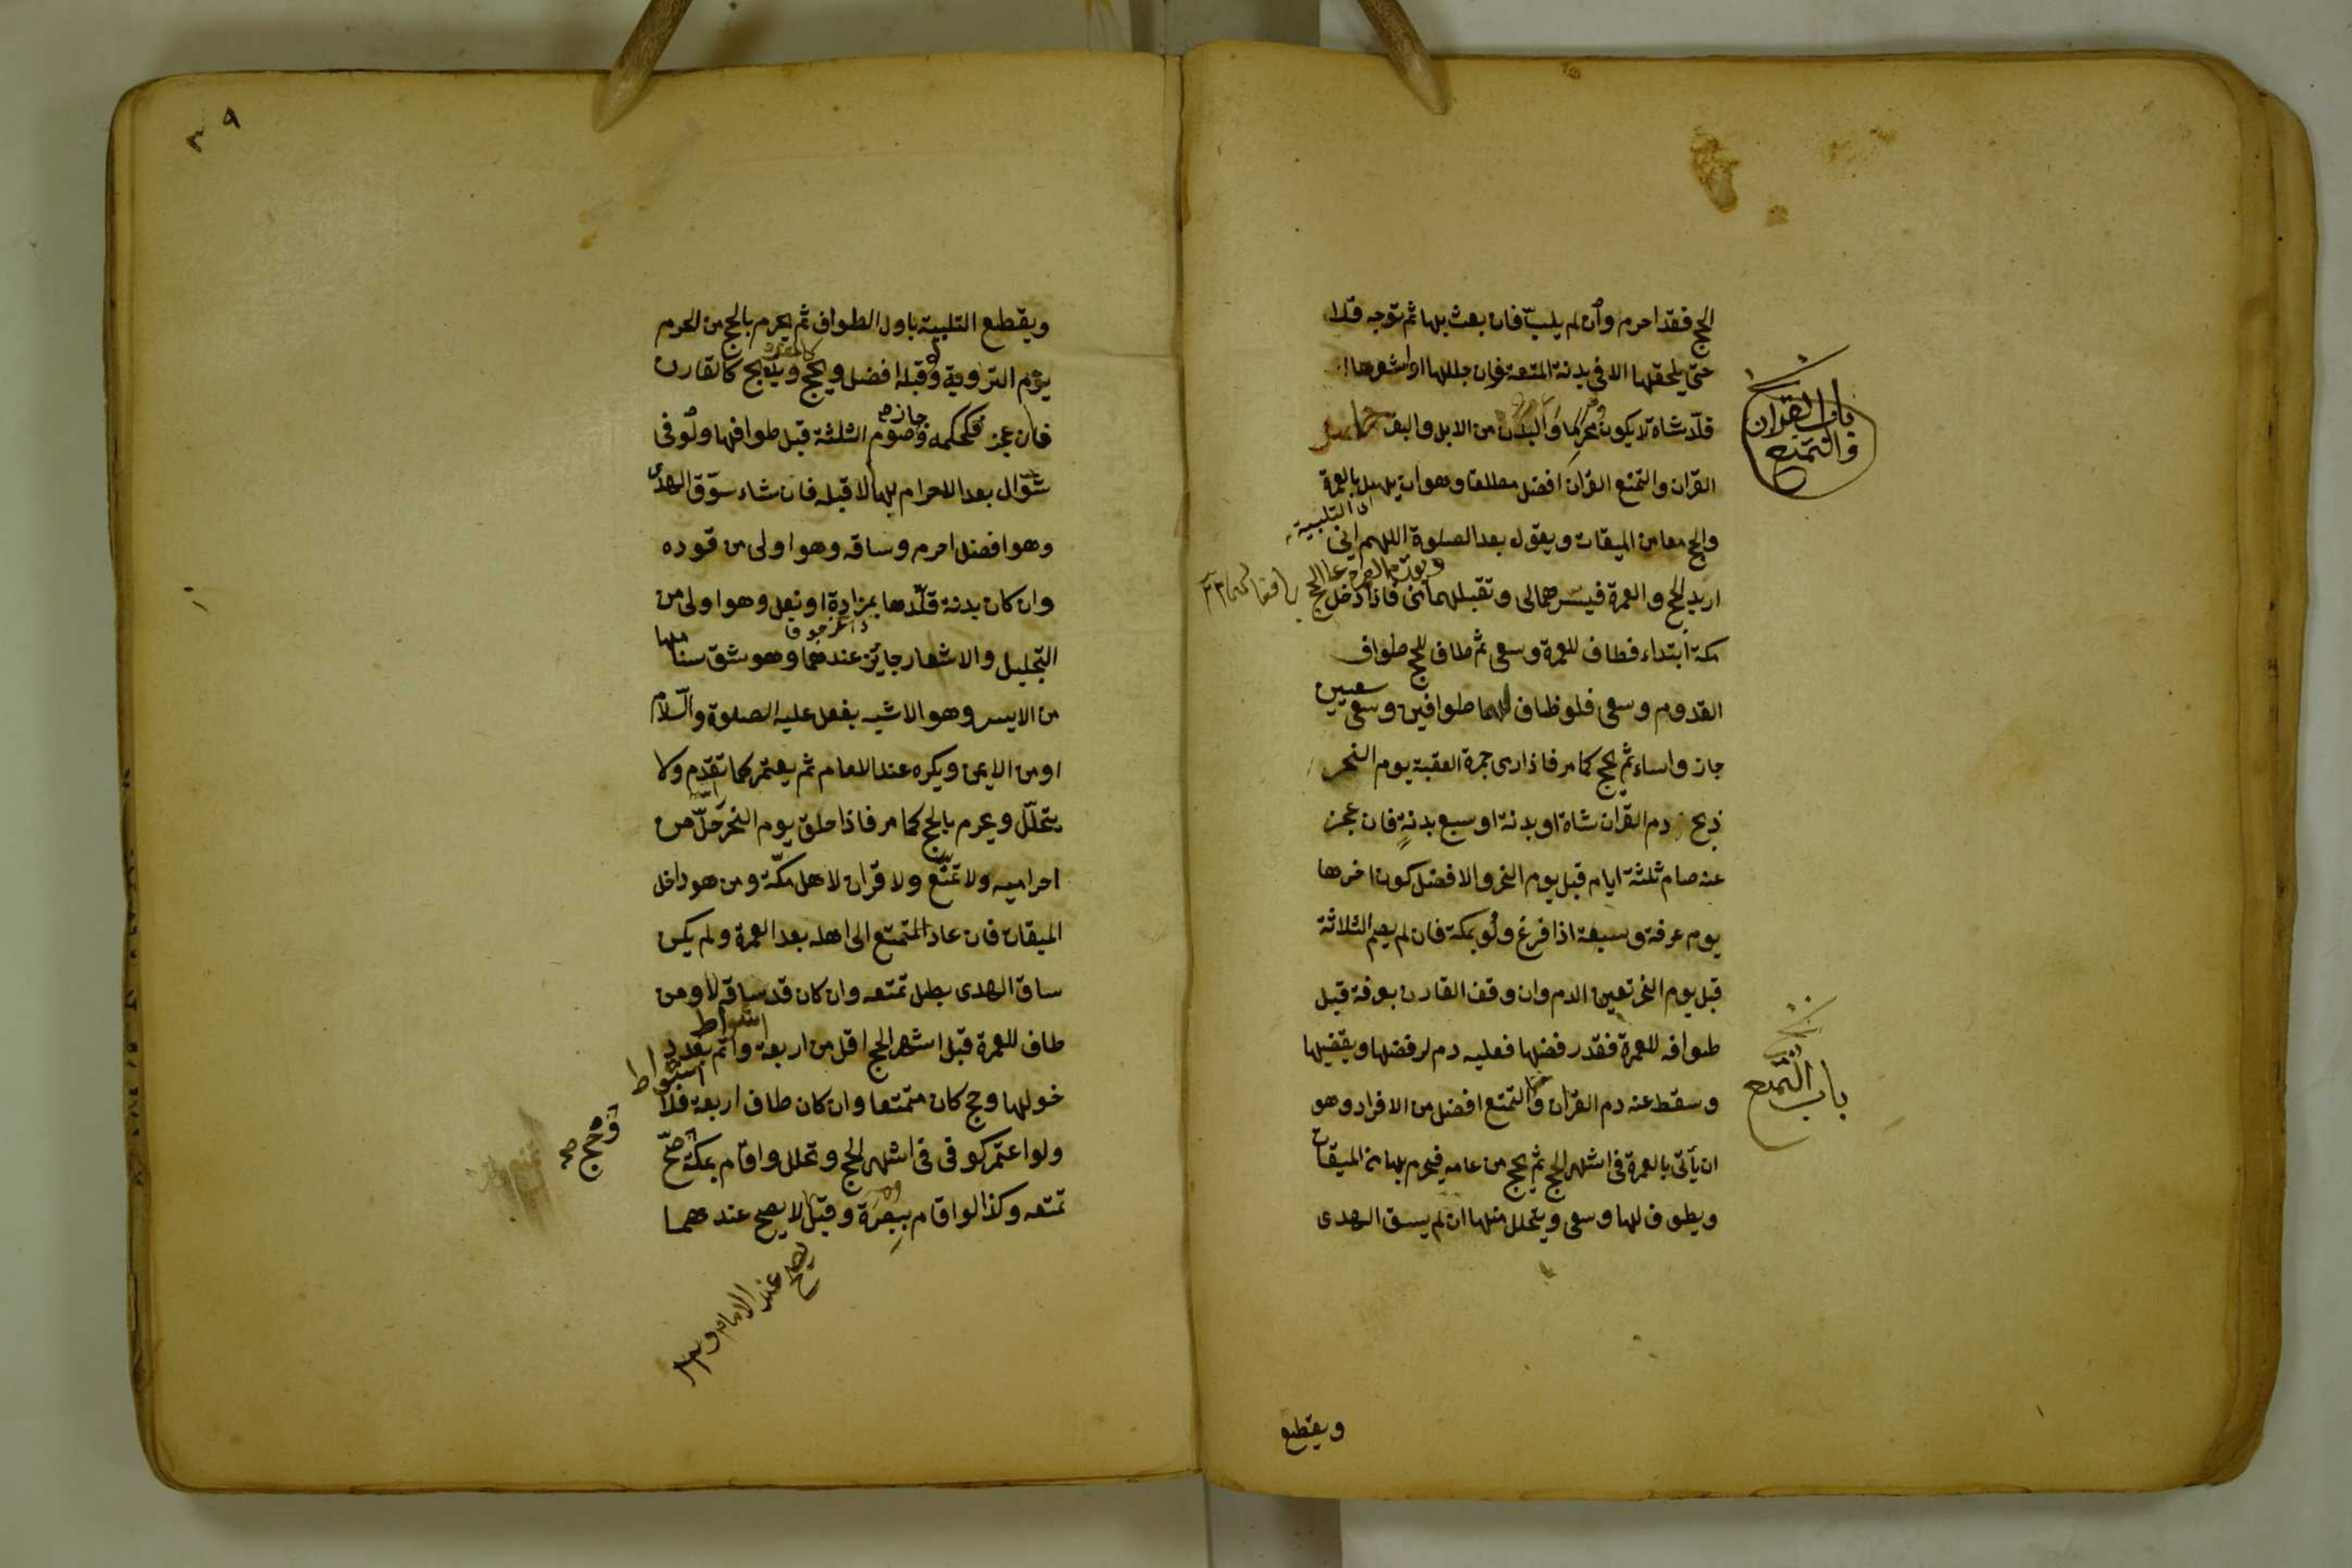 الحج فقد احرم وان لم يلبّ فان بعث بها ثم توجه فلا
حتى يلحقها الا في بدنة المتعة فان جللها او اشعرها او
قلّد شاة لا يكون محرما والبدن من الابل والبقر
باب القران
والتمتع
القران والتمتع القران افضل مطلقا وهو ان يهل بالعمرة
والحج معا من الميقات ويقول بعد الصلوة اللهم اني
اى التلبية
اريد الحج والعمرة فيسرهما لى وتقبلهما منى فاذا دخل
مكة ابتداء فطاف للعمرة وسعى ثم طاف للحج طواف
القدوم وسعى فلو طاف لهما طوافين وسعى سعيين
جاز واساء ثم يحج كما مر فاذا رمى جمرة العقبة يوم النحر
ذبح دم القران شاة او بدنة او سبع بدنةٍ فان عجز
عنه صام ثلثة ايام قبل يوم النحر والافضل كون اخرها
يوم عرفة وسبعة اذا فرغ ولو بمكة فان لم يصم الثلاثة
قبل يوم النحر تعين الدم وان وقف القارن بعرفة قبل
طوافه للعمرة فقد رفضها فعليه دم لرفضها ويقضيها
وسقط عنه دم القران والتمتع افضل من الافراد وهو
باب التمتع
ان يأتى بالعمرة فى اشهر الحج ثم يحج من عامه فيحرم بها من الميقات
ويطوف لها وسعى ويتحلل منها ان لم يسق الهدى
ويقطع
٣٩
ويقطع التلبية باول الطواف ثم يحرم بالحج من الحرم
يوم التروية وقبله افضل ويحج ويذبح كالقارن
كالمفرد
فان عجز فكحكمه وجاز صوم الثلثة قبل طوافها ولو فى
شوّال بعد الاحرام بها لا قبله فان شاء سوق الهدى
وهو افضل احرم وساقه وهو اولى من قوده
وان كان بدنة قلّدها بمزادة او نعل وهو اولى من
التجليل والاشعار جايز عندهما وهو شق سنامها
من الايسر وهو الاشبه بفعل عليه الصلوة والسّلام
او من الايمن ويكره عند الامام ثم يعتمر كما تقدم ولا
يتحلّل ويحرم بالحج كما مر فاذا حلق يوم النحر حلّ من
احراميه ولا تمتّع ولا قران لاهل مكّة ومن هو داخل
الميقات فان عاد المتمتع الى اهله بعد العمرة ولم يكن
ساق الهدى بطل تمتعه وان كان قد ساقه لا ومن
طاف للعمرة قبل اشهر الحج اقل من اربعة اشواط واتم بعد د
خولها وحج كان متمتعا وان كان طاف اربعة فلا
اشواط
ولو اعتمر كوفى فى اشهر الحج وتحلل واقام بمكة صحّ
وحج صح
تمتعه وكذا لو اقام ببصرة وقيل لا يصح عندهما
يصح عند الامام